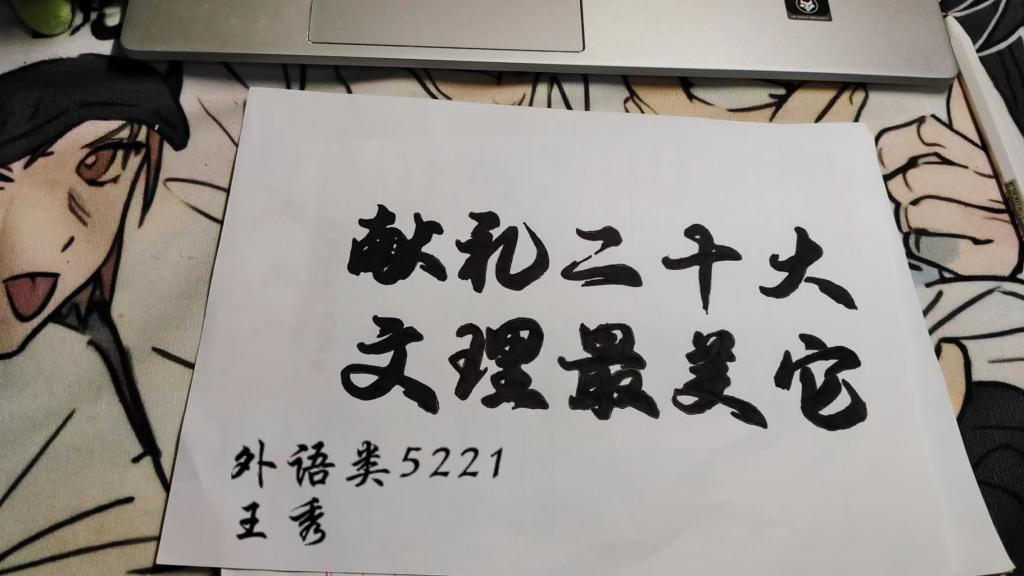 献礼二十大
文理最美它
外语类5221
王秀